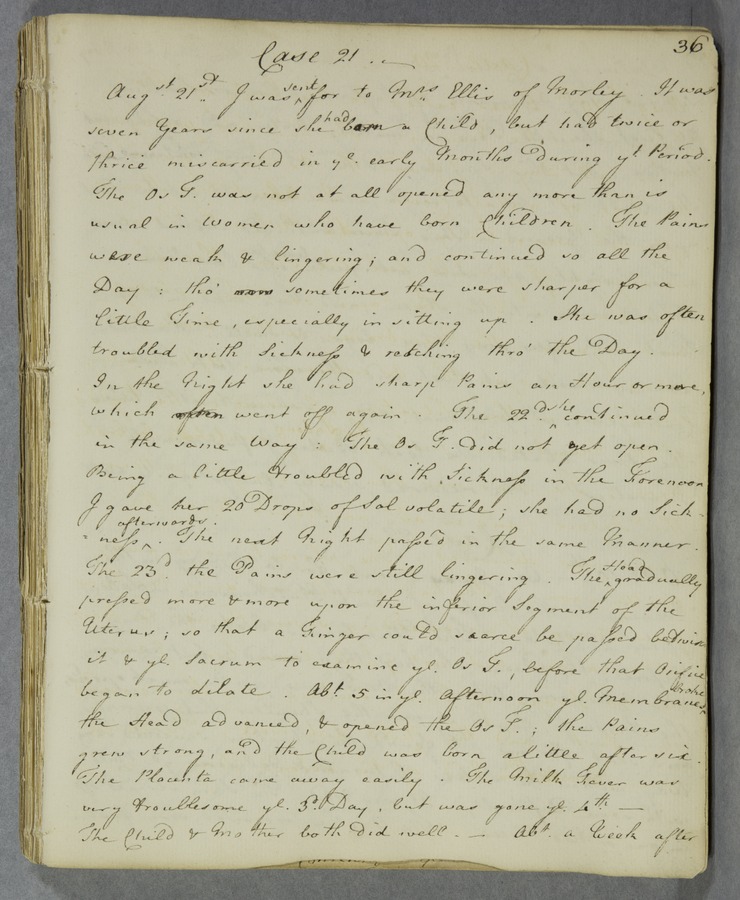 36
Case 21 . —
Augst 21st. I was sent for to Mrs Ellis of Morley. It was
seven Years since she had born a Child, but had twice or
thrice miscarried in ye. early Months during yt Period.
The Os T. was not at all opened any more than is
usual in Women who have born Children. The Pains
were weak & lingering; and continued so all the
Day: tho' sometimes they were sharper for a
little Time, especially in sitting up. She was often
troubled with Sickness & retching thro' the Day.
In the Night she had sharp Pains an Hour or more,
which often went off again. The 22d. she continued
in the same Way: The Os T. did not yet open.
Being a little troubled with Sickness in the Forenoon
I gave her 20 Drops of Sal volatile; she had no Sick-
=ness afterwards. The next Night passed in the same Manner.
The 23d. the Pains were still lingering. The Head gradually
pressed more & more upon the inferior Segment of the
Uterus; so that a Finger could scarce be passed betwixt
it & ye. Sacrum to examine ye. Os T., before that Orifice
began to dilate. Abt. 5 in ye. Afternoon ye. Membranes broke
the Head advanced, & opened the Os T.; the Pains
grew strong, and the Child was born a little after six.
The Placenta came away easily. The Milk Fever was
very troublesome ye. 3d Day, but was gone ye. 4th —
The Child & Mother both did well. — Abt. a Week after